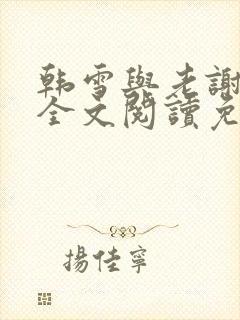 韩雪與老謝
全文閱讀免
揚佳寧